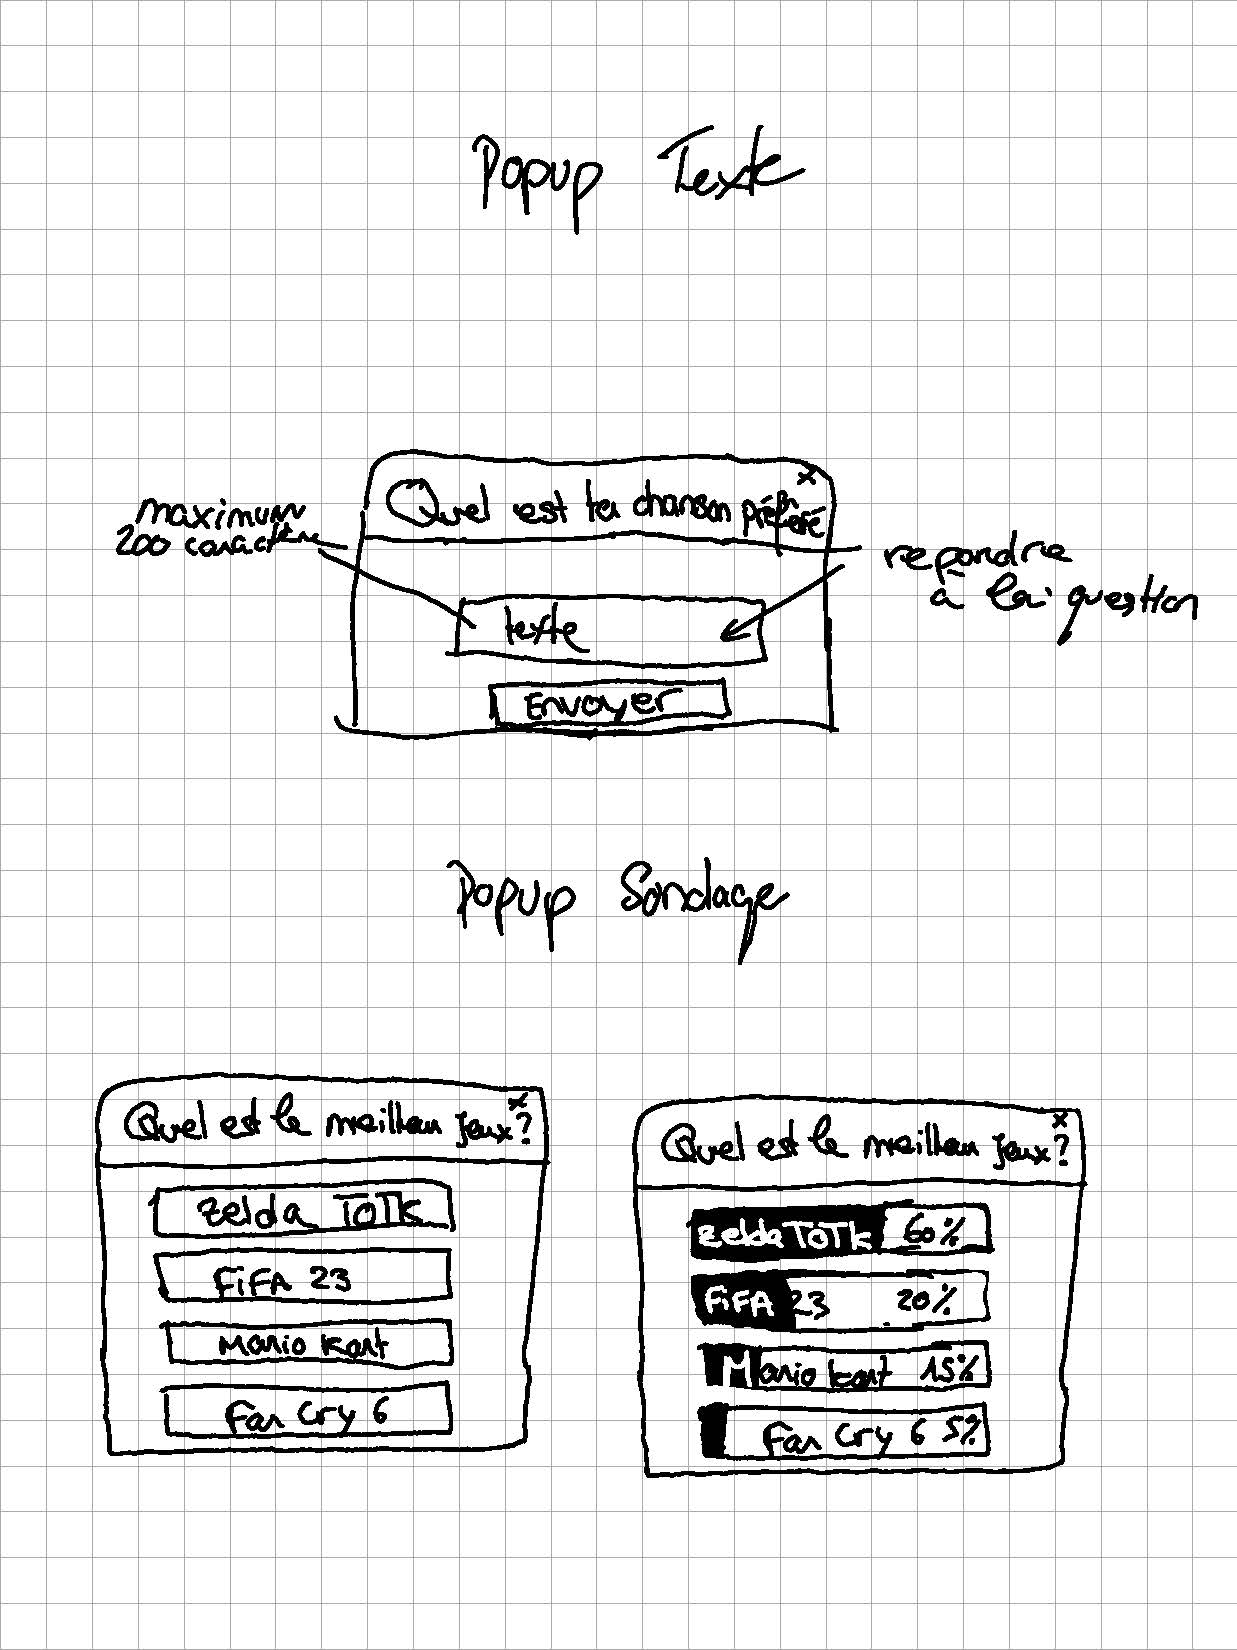 Popup Texte
x
Quel est ta chanson préféré
maximum
200 caractère
repondre
à la question
texte
Envoyer
Popup Sondage
x
Quel est le meilleur jeux?
Zelda TOTK
FiFA 23
Mario Kart
Far Cry 6
x
Quel est le meilleur jeux?
Zelda TOTK 60%
FiFA 23 20%
Mario kart 15%
Far Cry 6 5%